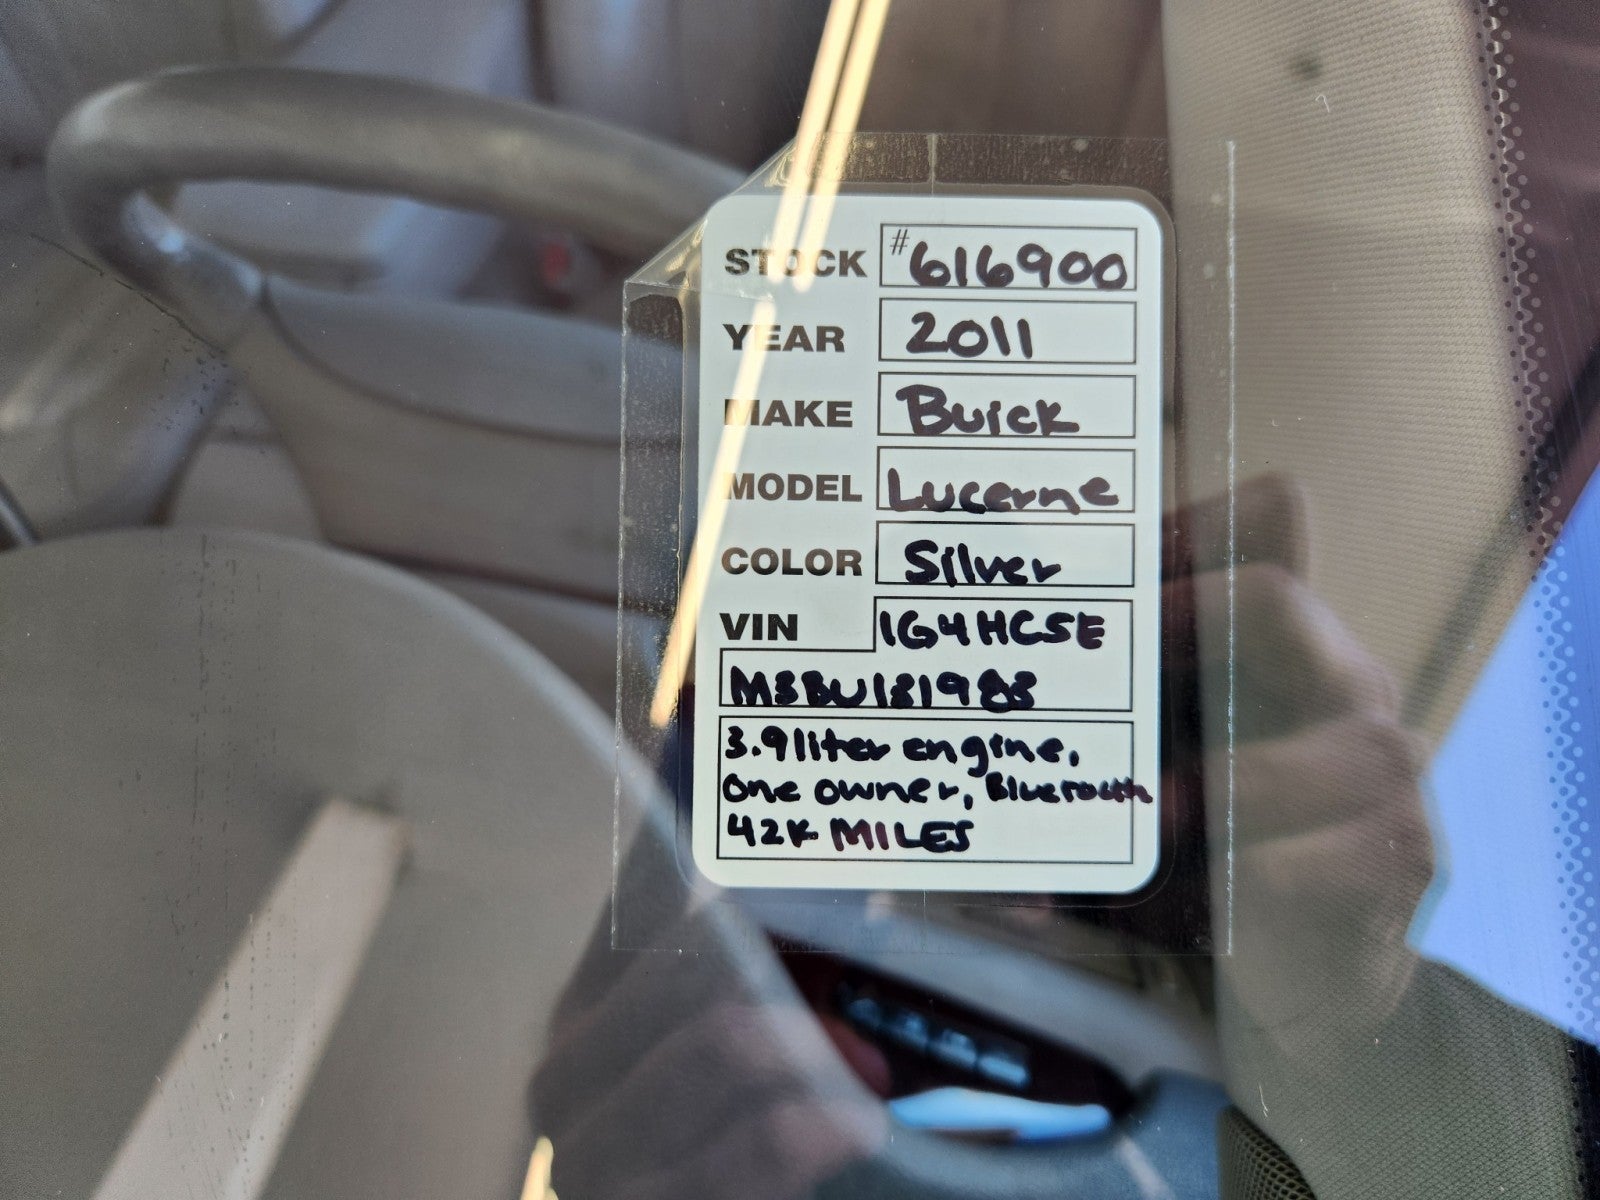 STOCK #616900
YEAR 2011
MAKE Buick
MODEL Lucerne
COLOR Silver
VIN 1G4HC5E
M3BU181988
3.9liter engine,
one owner, Bluetooth
42K MILES